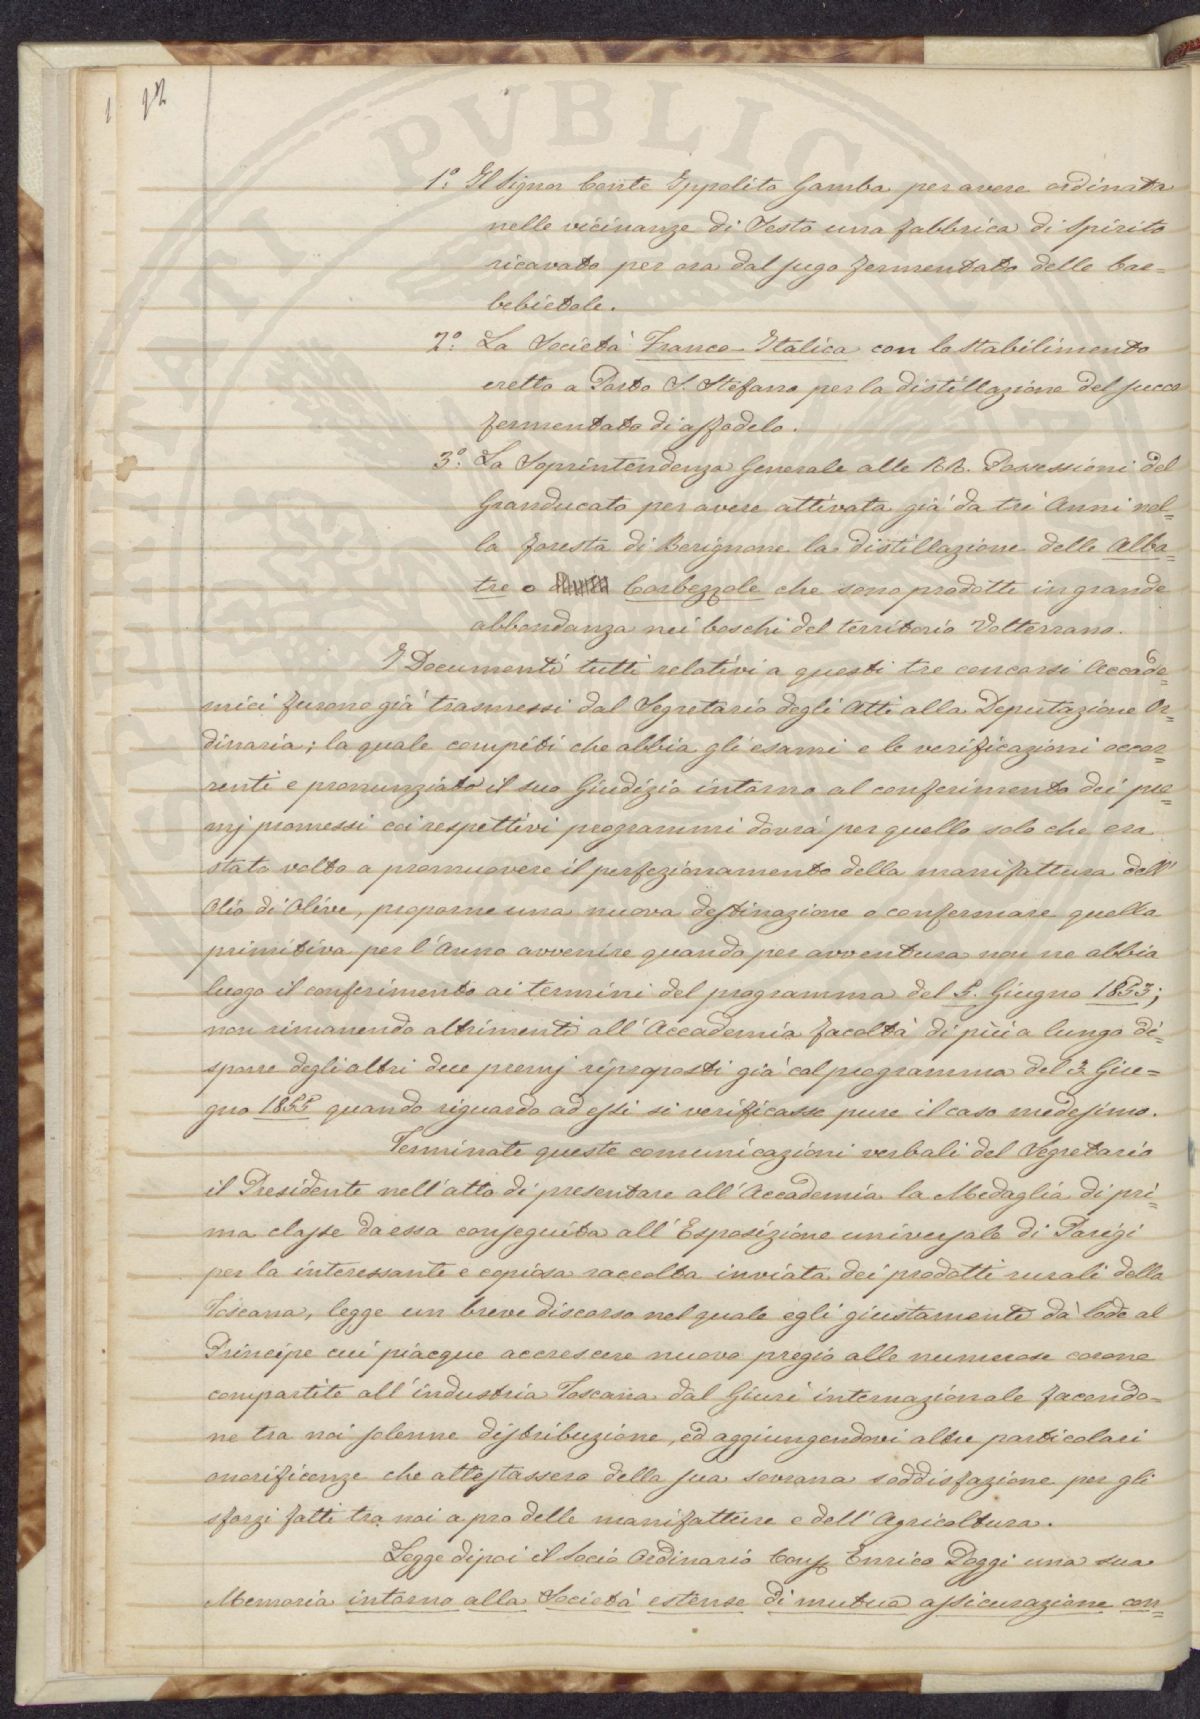 12
1º. Il Signor Conte Ippolito Gamba per avere ordinata
nelle vicinanze di Sesto una fabbrica di Spirito
ricavato per ora dal sugo fermentato delle bar=
bebietole.
2º. La Società Franco-Italica con lo Stabilimento
eretto a Porto S. Stefano per la distillazione del succo
fermentato di affodelo.
3º. La Soprintendenza Generale alle RR. Possessioni del
Granducato per avere attivata già da tre Anni nel=
la foresta di Berignone la distillazione delle Alba=
tre o Corbezzole che sono prodotte in grande
abbondanza nei boschi del territorio Volterrano.
I Documenti tutti relativi a questi tre concorsi Accade=
mici furono già trasmessi dal Segretario degli Atti alla Deputazione Or=
dinaria; la quale compiti che abbia gli esami e le verificazioni occor=
renti e pronunziato il suo Giudizio intorno al conferimento dei pre=
mj promessi coi respettivi programmi dovrà per quello solo che era
stato volto a promuovere il perfezionamento della manifattura dell'
Olio di Olive, proporne una nuova destinazione o confermare quella
primitiva per l'Anno avvenire quando per avventura non ne abbia
luogo il conferimento ai termini del programma del 5. Giugno 1853;
non rimanendo altrimenti all'Accademia facoltà di più a lungo di=
sporre degli altri due premj riproposti già col programma del 3. Giu=
gno 1855 quando riguardo ad essi si verificasse pure il caso medesimo.
Terminate queste comunicazioni verbali del Segretario
il Presidente nell'atto di presentare all'Accademia la Medaglia di pri=
ma classe da essa conseguita all'Esposizione universale di Parigi
per la interessante e copiosa raccolta inviata dei prodotti rurali della
Toscana, legge un breve discorso nel quale egli giustamente dà lode al
Principe cui piacque accrescere nuovo pregio alle numerose corone
compartite all'industria Toscana dal Giurì internazionale facendo=
ne tra noi solenne distribuzione, ed aggiungendovi altre particolari
onorificenze che attestassero della sua sovrana soddisfazione per gli
sforzi fatti tra noi a pro delle manifatture e dell'Agricoltura.
Legge dipoi il Socio Ordinario Enrico Poggi una sua
Memoria intorno alla Società estense di mutua assicurazione con=